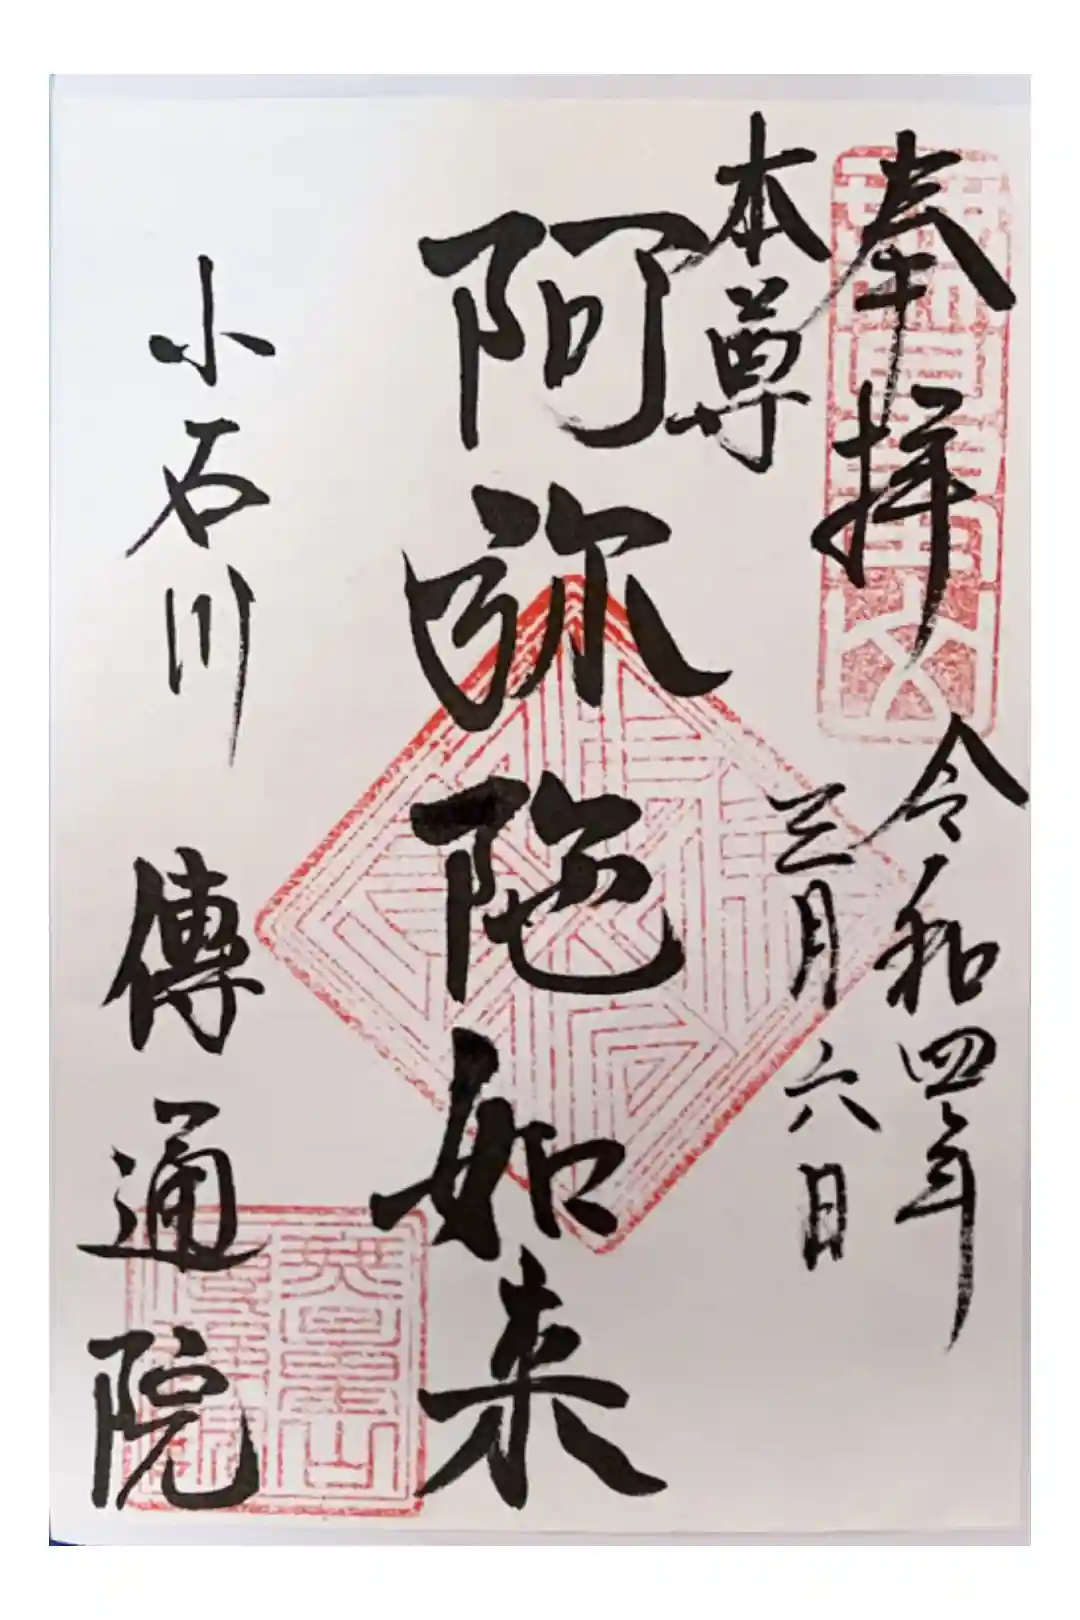 奉拝
令和四年
三月六日
本尊
阿弥陀如来
小石川
傳通院